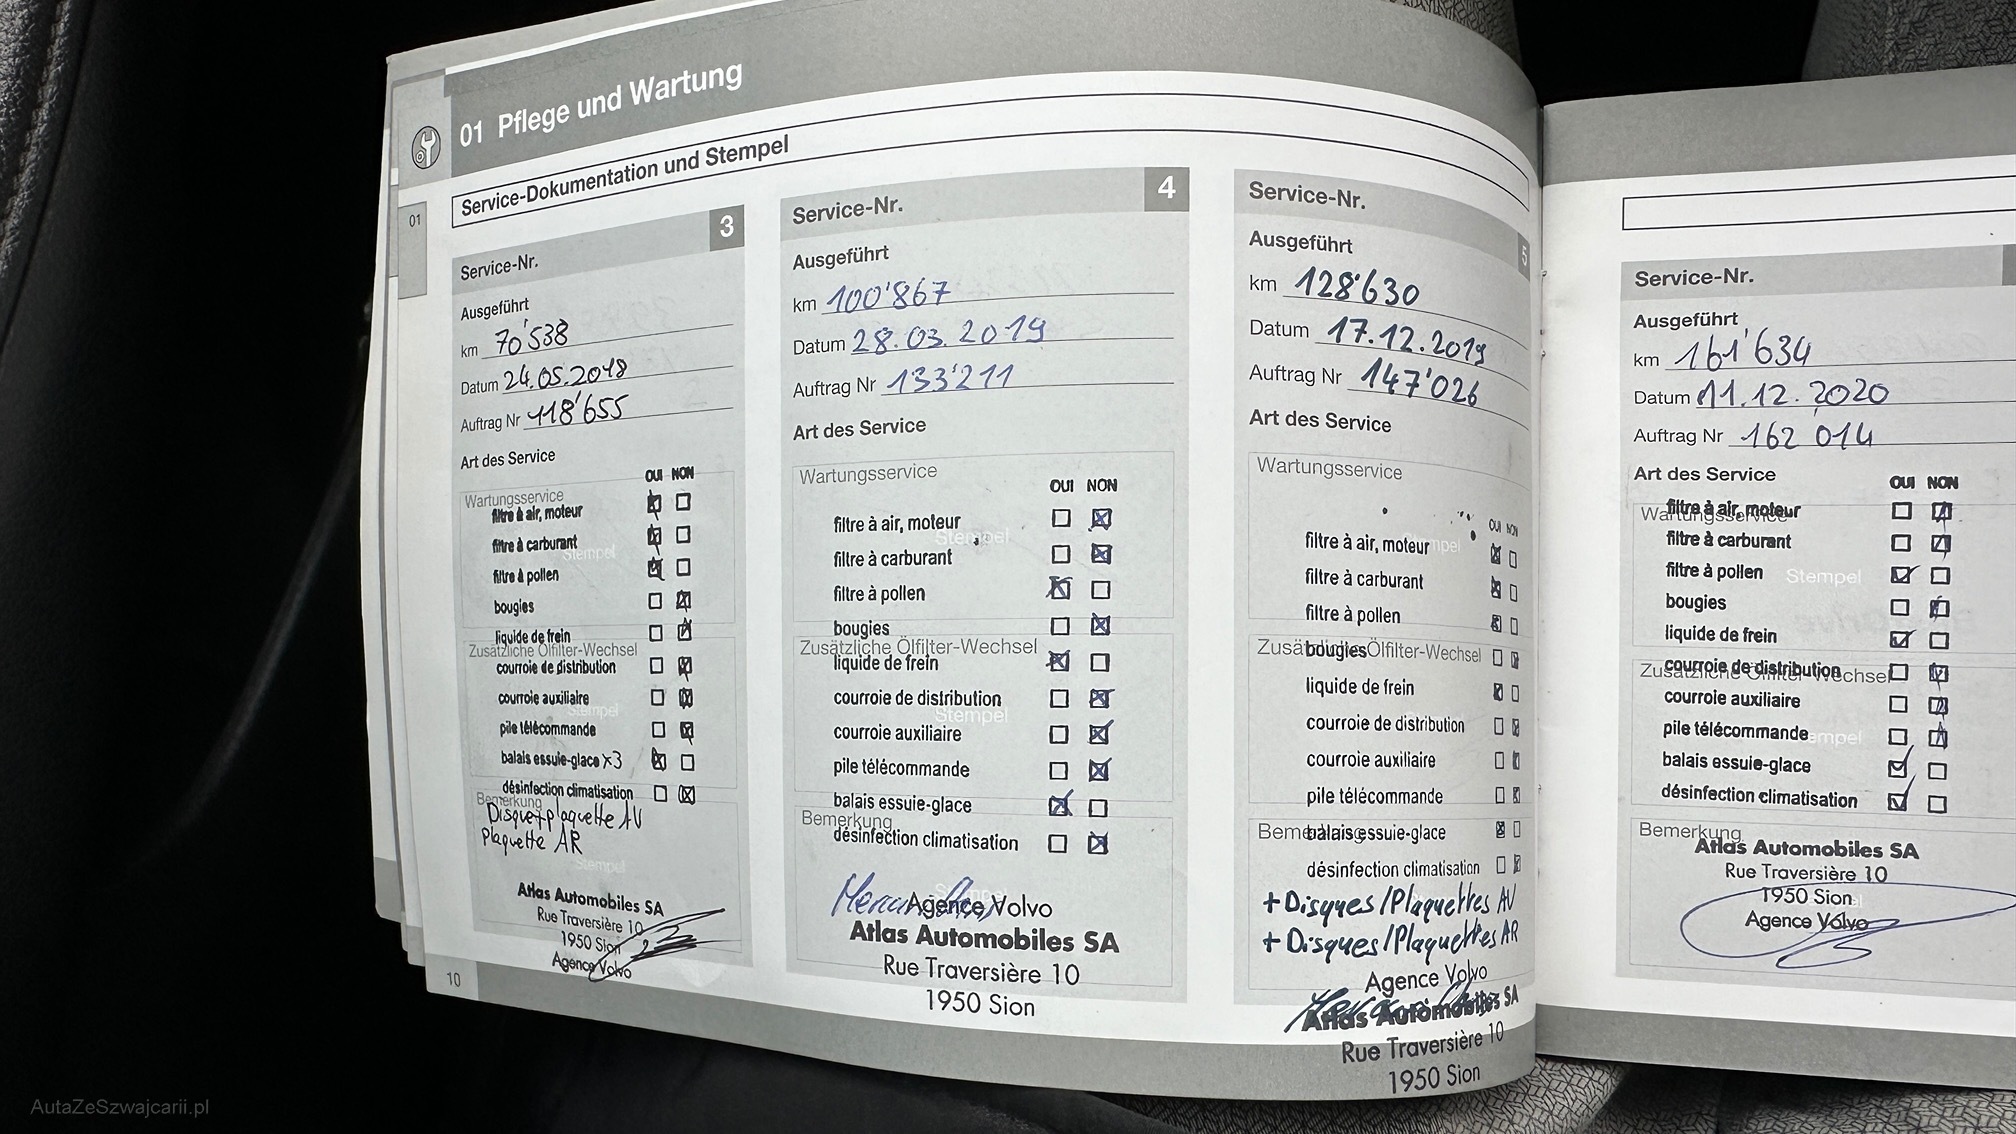 01 Pflege und Wartung
Service-Dokumentation und Stempel
01
3
Service-Nr.
Ausgeführt
km 70'538
Datum 24.05.2018
Auftrag Nr 118'655
Art des Service
OUI NON
Wartungsservice
filtre à air, moteur
filtre à carburant
Stempel
filtre à pollen
bougies
liquide de frein
Zusätzliche Ölfilter-Wechsel
courroie de distribution
courroie auxiliaire
Stempel
pile télécommande
balais essuie-glace x3
désinfection climatisation
Bemerkung
Disque+plaquette AV
Plaquette AR
Stempel
Atlas Automobiles SA
Rue Traversière 10
1950 Sion
Agence Volvo
10
Service-Nr. 4
Ausgeführt
km 100'867
Datum 28.03.2019
Auftrag Nr 133'211
Art des Service
Wartungsservice
OUI NON
filtre à air, moteur
Stempel
filtre à carburant
filtre à pollen
bougies
Zusätzliche Ölfilter-Wechsel
liquide de frein
courroie de distribution
Stempel
courroie auxiliaire
pile télécommande
balais essuie-glace
Bemerkung
désinfection climatisation
Agence Volvo
Atlas Automobiles SA
Rue Traversière 10
1950 Sion
Service-Nr. 5
Ausgeführt
km 128'630
Datum 17.12.2019
Auftrag Nr 147'026
Art des Service
Wartungsservice
OUI NON
filtre à air, moteur
filtre à carburant
filtre à pollen
bougies
Zusätzliche Ölfilter-Wechsel
liquide de frein
courroie de distribution
courroie auxiliaire
pile télécommande
Bemerkung
balais essuie-glace
désinfection climatisation
+ Disques/Plaquettes AV
+ Disques/Plaquettes AR
Agence Volvo
Atlas Automobiles SA
Rue Traversière 10
1950 Sion
Service-Nr.
Ausgeführt
km 161'634
Datum 11.12.2020
Auftrag Nr 162 014
Art des Service
OUI NON
Wartungsservice
filtre à air, moteur
filtre à carburant
filtre à pollen
Stempel
bougies
liquide de frein
courroie de distribution
Zusätzliche Ölfilter-Wechsel
courroie auxiliaire
pile télécommande
Stempel
balais essuie-glace
désinfection climatisation
Bemerkung
Atlas Automobiles SA
Rue Traversière 10
1950 Sion
Agence Volvo
AutaZeSzwajcarii.pl